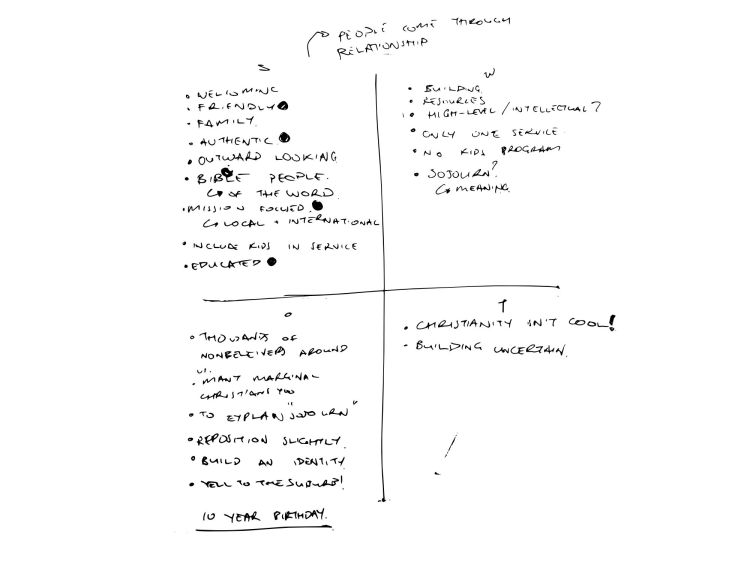 PEOPLE COME THROUGH
RELATIONSHIP
S
• WELCOMING
• FRIENDLY
• FAMILY
• AUTHENTIC
• OUTWARD LOOKING
• BIBLE PEOPLE.
↳ OF THE WORD.
• MISSION FOCUSED.
↳ LOCAL + INTERNATIONAL
• INCLUDE KIDS IN SERVICE
• EDUCATED
W
• BUILDING
• RESOURCES
• HIGH-LEVEL / INTELLECTUAL?
• ONLY ONE SERVICE.
• NO KIDS PROGRAM
• SOJOURN?
↳ MEANING.
O
• THOUSANDS OF
NONBELIEVERS AROUND
US.
• MANY MARGINAL
CHRISTIANS TOO
• TO EXPLAIN "SOJOURN"
• REPOSITION SLIGHTLY.
• BUILD AN IDENTITY
• YELL TO THE SUBURB!
10 YEAR BIRTHDAY.
T
• CHRISTIANITY ISN'T COOL!
• BUILDING UNCERTAIN.